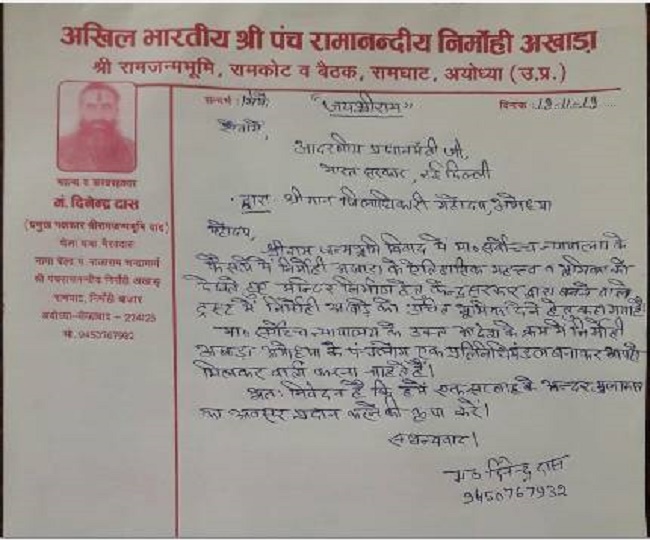 अखिल भारतीय श्री पंच रामानन्दीय निर्मोही अखाडा़
श्री रामजन्मभूमि, रामकोट व बैठक, रामघाट, अयोध्या (उ.प्र.)
सन्दर्भ :
"जयश्रीराम"
दिनांक 19-11-19
सेवामें,
आदरणीय प्रधानमंत्री जी,
भारत सरकार, नई दिल्ली
द्वारा- श्रीमान जिलाधिकारी महोदय, अयोध्या
महन्त व सरबराहकार
मं. दिनेन्द्र दास
(प्रमुख पक्षकार श्रीरामजन्मभूमि वाद)
चेला पंथ वैरवदार
श्री पंचरामानन्दीय निर्मोही अखाड़ा
रामघाट, निर्मोही बाजार
अयोध्या-फैजाबाद – 224123
मो. 9450767932
महोदय,
श्रीराम जन्मभूमि विवाद में मा० सर्वोच्च न्यायालय के
फैसले में निर्मोही अखाडा के ऐतिहासिक महत्त्व व भूमिका को
देखते हुए मन्दिर निर्माण हेतु केन्द्र सरकार द्वारा बनने वाले
ट्रस्ट में निर्मोही अखाड़े को उचित भूमिका देने हेतु कहा गया है।
मा० सर्वोच्च न्यायालय के उक्त आदेश के क्रम में निर्मोही
अखाडा अयोध्या के पंच लोग एक प्रतिनिधिमंडल बनाकर आपसे
मिलकर वार्ता करना चाहते हैं।
अतः निवेदन है कि हमें एक सप्ताह के अन्दर मुलाकात
का अवसर प्रदान करने की कृपा करें।
सधन्यवाद।
म० दिनेन्द्र दास
9450767932